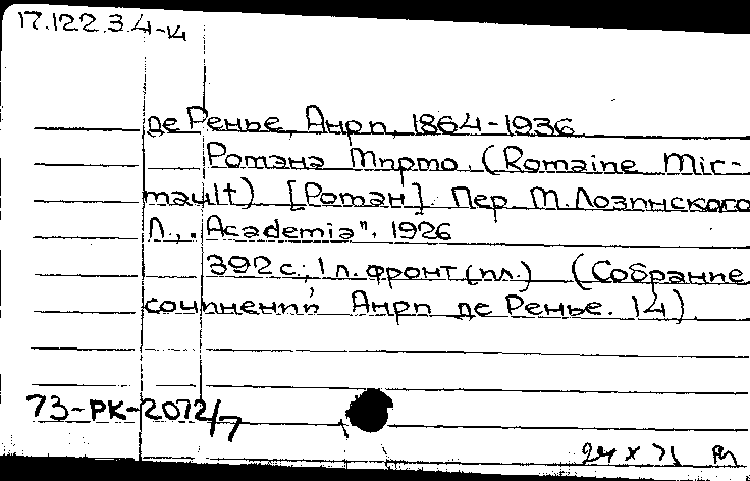 17.122.3.4-14
де Ренье, Анри, 1864-1936.
Ромэна Мирмо. (Romaine Mir-
mault) [Роман] Пер. М. Лозинского
Л., „Academia", 1926
392 с.; 1 л. фронт (ил.) (Собрание
сочинений Анри де Ренье. 14)
73-РК-2072/7